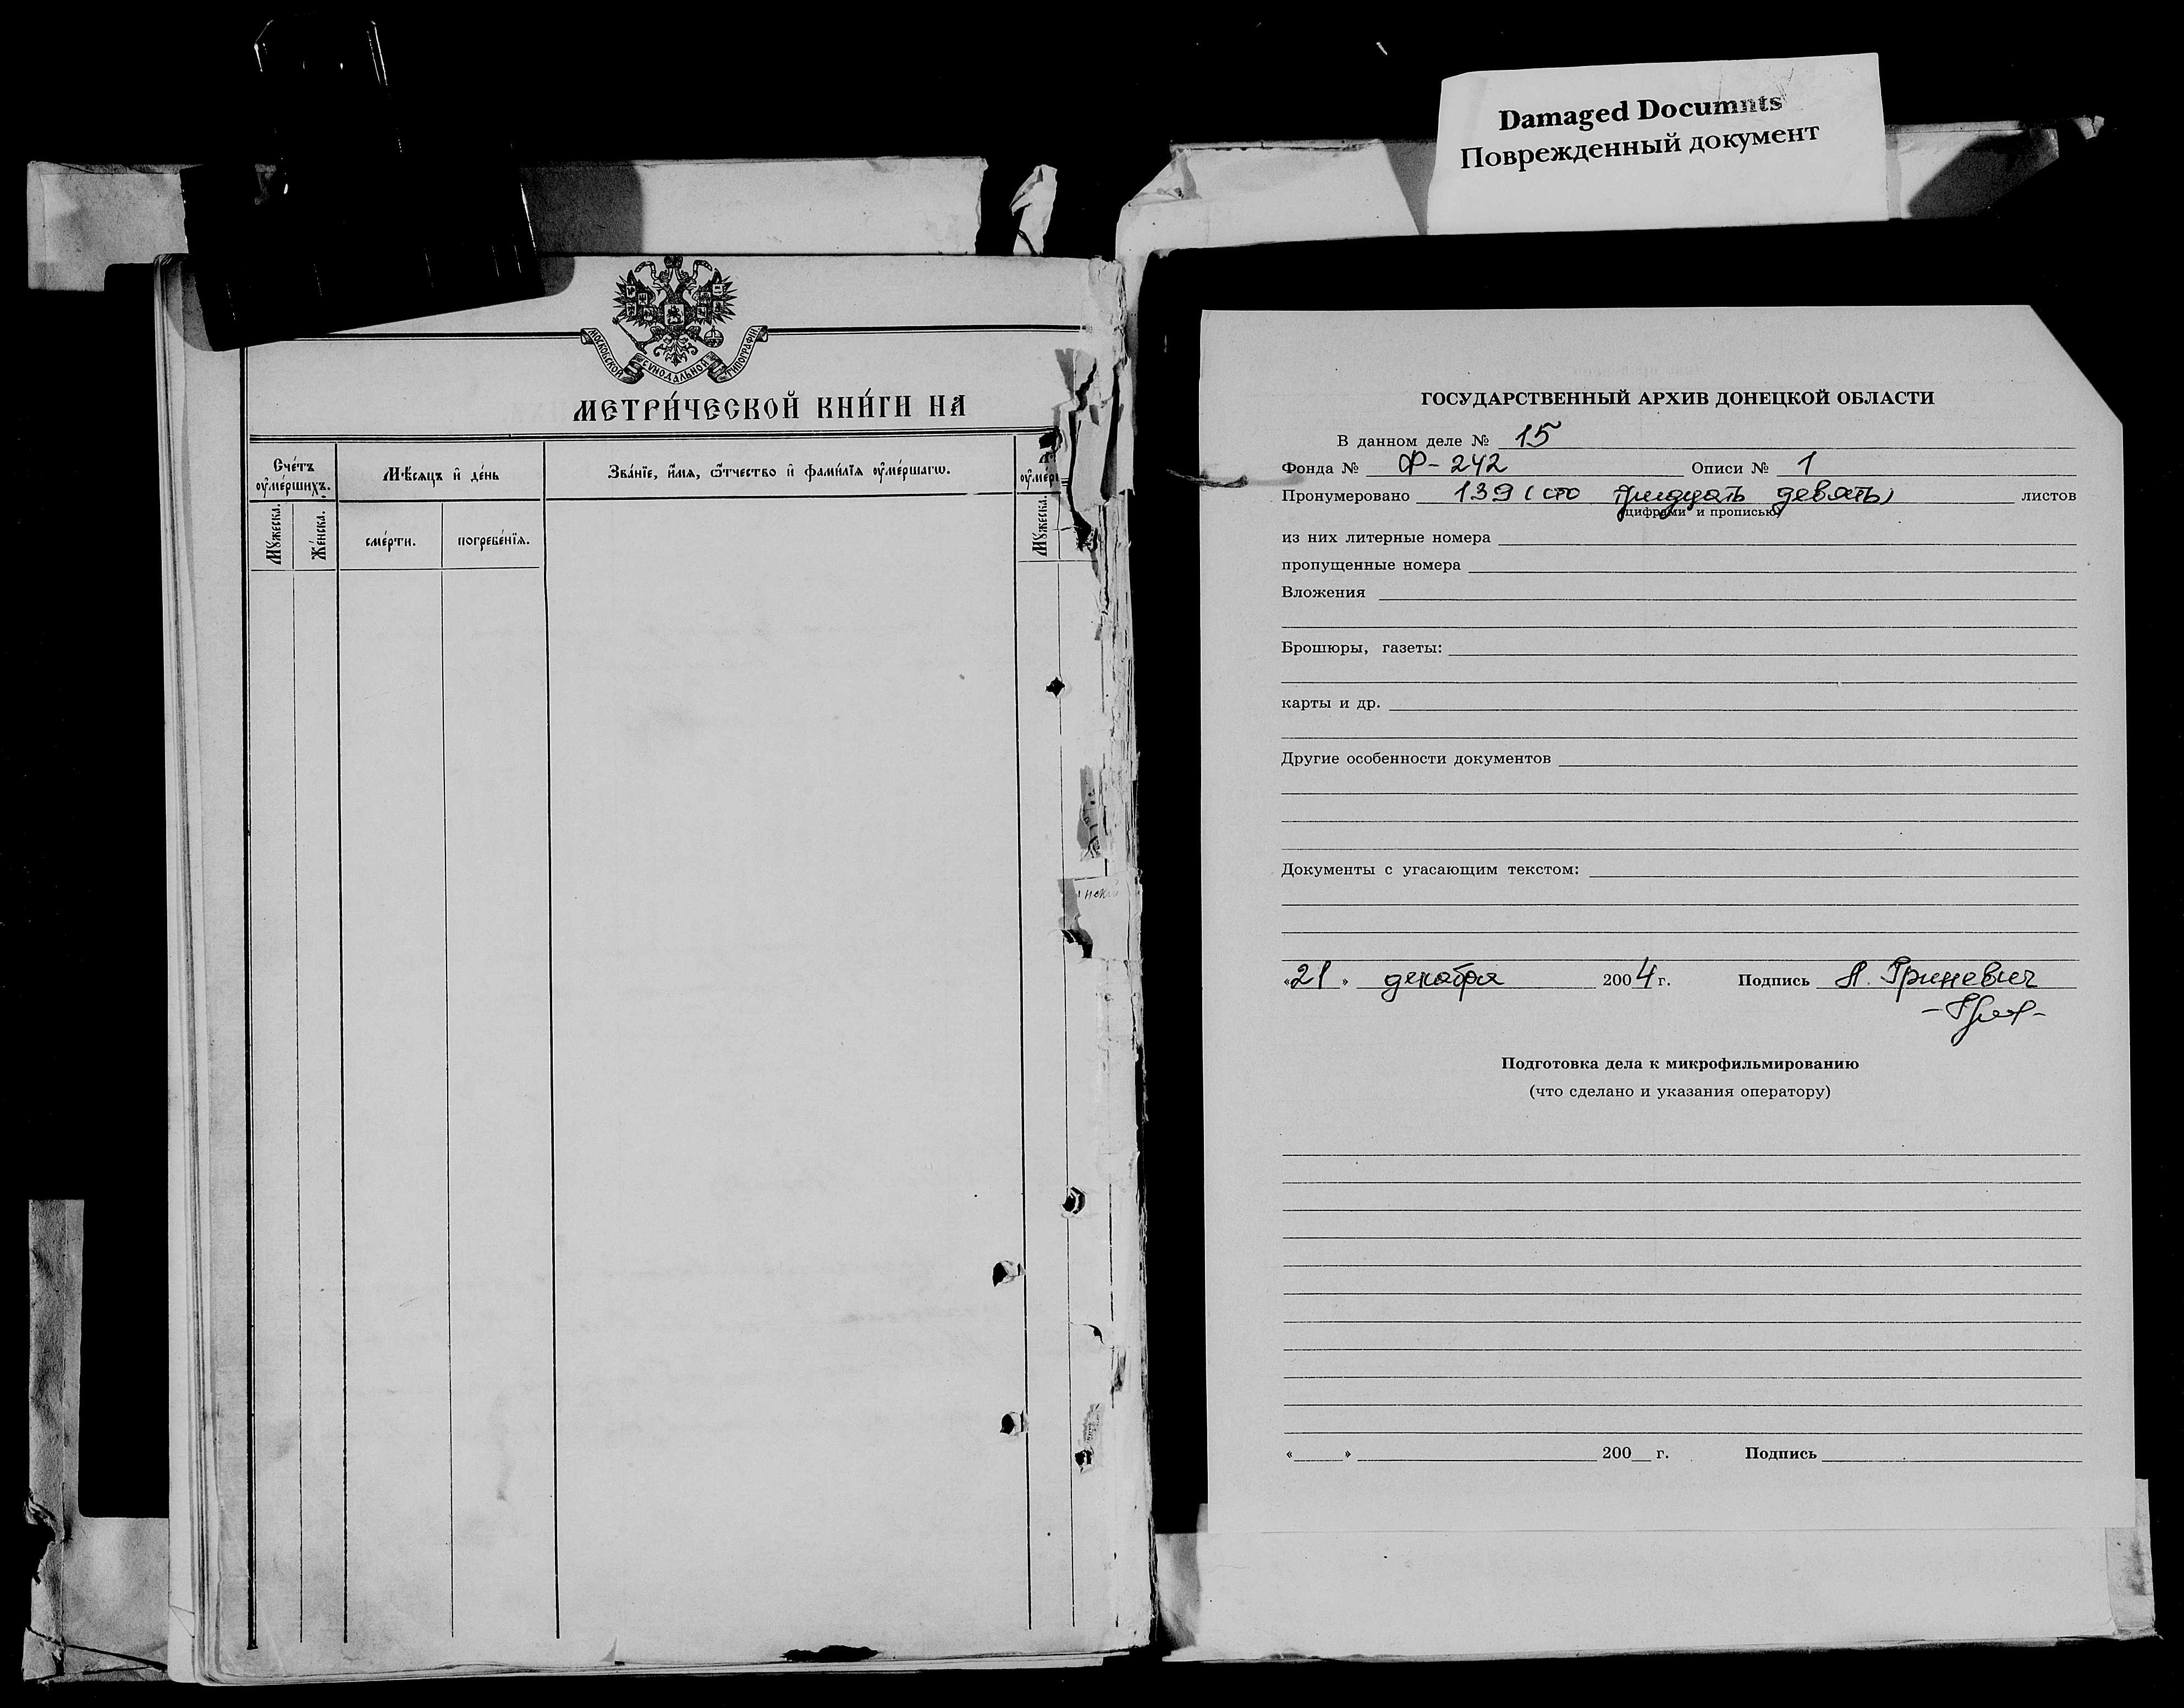 Damaged Documnts
Поврежденный документ
МОСКОВСКОЙ СУНОДАЛЬНОЙ ТИПОГРАФІИ
МЕТРИ́ЧЕСКОЙ КНИ́ГИ НА
Сче́тъ ᲂу҆ме́ршихъ.
Мѣ́сяцъ и҆ де́нь
Зва́нїе, и҆́мя, ѻ҆́тчество и҆ фами́лїя ᲂу҆ме́ршагѡ.
Мꙋ́жеска.
Же́нска.
сме́рти.
погребе́нїя.
Мꙋ́жеска.
ГОСУДАРСТВЕННЫЙ АРХИВ ДОНЕЦКОЙ ОБЛАСТИ
В данном деле № 15
Фонда № Ф-242 Описи № 1
Пронумеровано 139 (сто тридцать девять) листов
(цифрами и прописью)
из них литерные номера
пропущенные номера
Вложения
Брошюры, газеты:
карты и др.
Другие особенности документов
Документы с угасающим текстом:
«21» декабря 2004 г. Подпись Л. Гриневич
Подготовка дела к микрофильмированию
(что сделано и указания оператору)
« » 200 г. Подпись